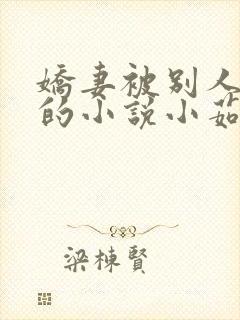 嬌妻被別人
的小說小茹
梁棟賢